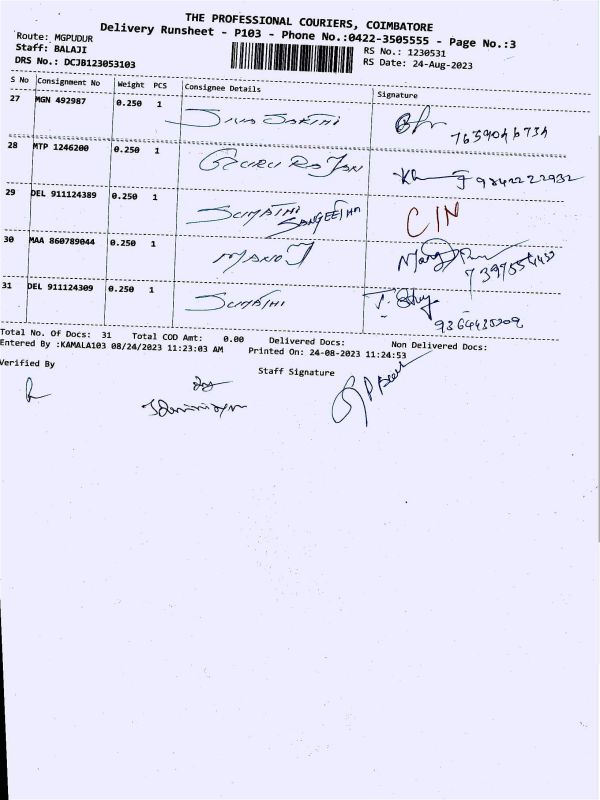 THE PROFESSIONAL COURIERS, COIMBATORE
Delivery Runsheet - P103 - Phone No.:0422-3505555 - Page No.:3
Route: MGPUDUR
Staff: BALAJI
RS No.: 1230531
DRS No.: DCJB123053103
RS Date: 24-Aug-2023
S No Consignment No Weight PCS Consignee Details Signature
27 MGN 492987 0.250 1 SIVA SAKTHI
28 MTP 1246200 0.250 1 GURU RAJAN 9842222932
29 DEL 911124389 0.250 1 SUMATHI SANGEETHA C/N
30 MAA 860789044 0.250 1 MANOJ
31 DEL 911124309 0.250 1 SUMATHI
Total No. Of Docs: 31 Total COD Amt: 0.00 Delivered Docs: Non Delivered Docs:
Entered By :KAMALA103 08/24/2023 11:23:03 AM Printed On: 24-08-2023 11:24:53
Verified By Staff Signature